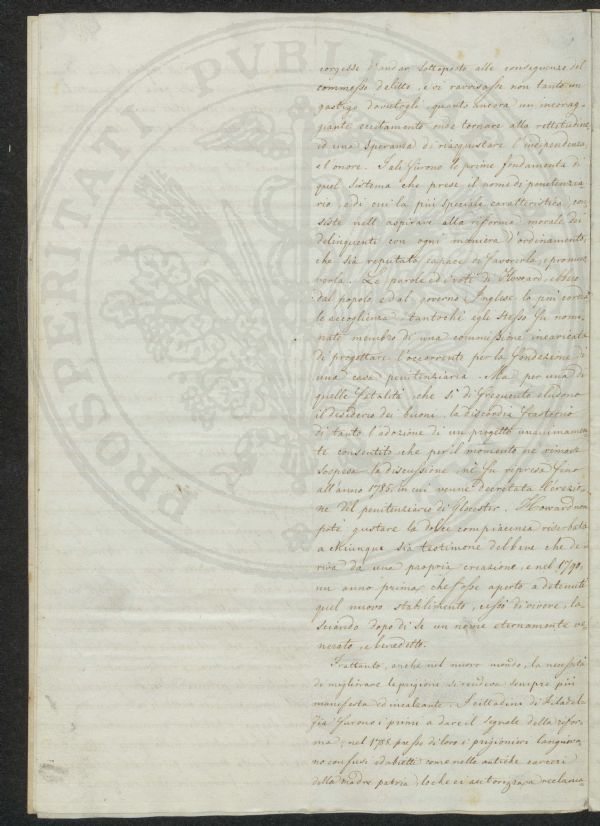 corgesse d'andar sottoposto alle conseguenze del
commesso delitto, e vi ravvisasse non tanto un
gastigo dovutogli quanto ancora un incorag-
giante eccitamento onde tornare alla rettitudine
ed una speranza di riacquistare l'indipendenza
e l'onore. Tali furono le prime fondamenta di
quel sistema che prese il nome di penitenzia-
rio, e di cui la più speciale caratteristica con-
siste nell'aspirare alla riforma morale dei
delinquenti con ogni maniera d'ordinamento,
che sia reputata capace di favorirla, e promuo-
verla. Le parole ed i voti di Howard, ebbero
dal popolo, ed al governo Inglese la più cordia-
le accoglienza tantochè egli stesso fu nomi-
nato membro di una commissione incaricata
di progettare l'occorrente per la fondazione di
una casa penitenziaria. Ma per una di
quelle fatalità, che sì di frequente eludono
il desiderio dei buoni, la discordia frastornò
di tanto l'adozione di un progetto unanimamen-
te consentito che per il momento ne rimase
sospesa la discussione, nè fu ripresa fino
all'anno 1785, in cui venne decretata l'erezio-
ne del penitenziario di Glocester. Howard non
potè gustare la dolce compiacenza riserbata
a chiunque sia testimone del bene che de-
riva da una propria creazione, e nel 1790,
un anno prima che fosse aperto a detenuti
quel nuovo stabilimento, cessò di vivere, la-
sciando dopo di se un nome eternamente ve-
nerato, e benedetto.
Frattanto, anche nel nuovo mondo, la necessità
di migliorare le prigioni si rendeva sempre più
manifesta ed incalzante. I cittadini di Filadel-
fia furono i primi a dare il segnale della rifor-
ma; nel 1788 presso di loro i prigionieri languiva-
no confusi ed abietti come nelle antiche carceri
della madre patria, loche ci autorizza a reclama-
PROSPERITATI PUBL